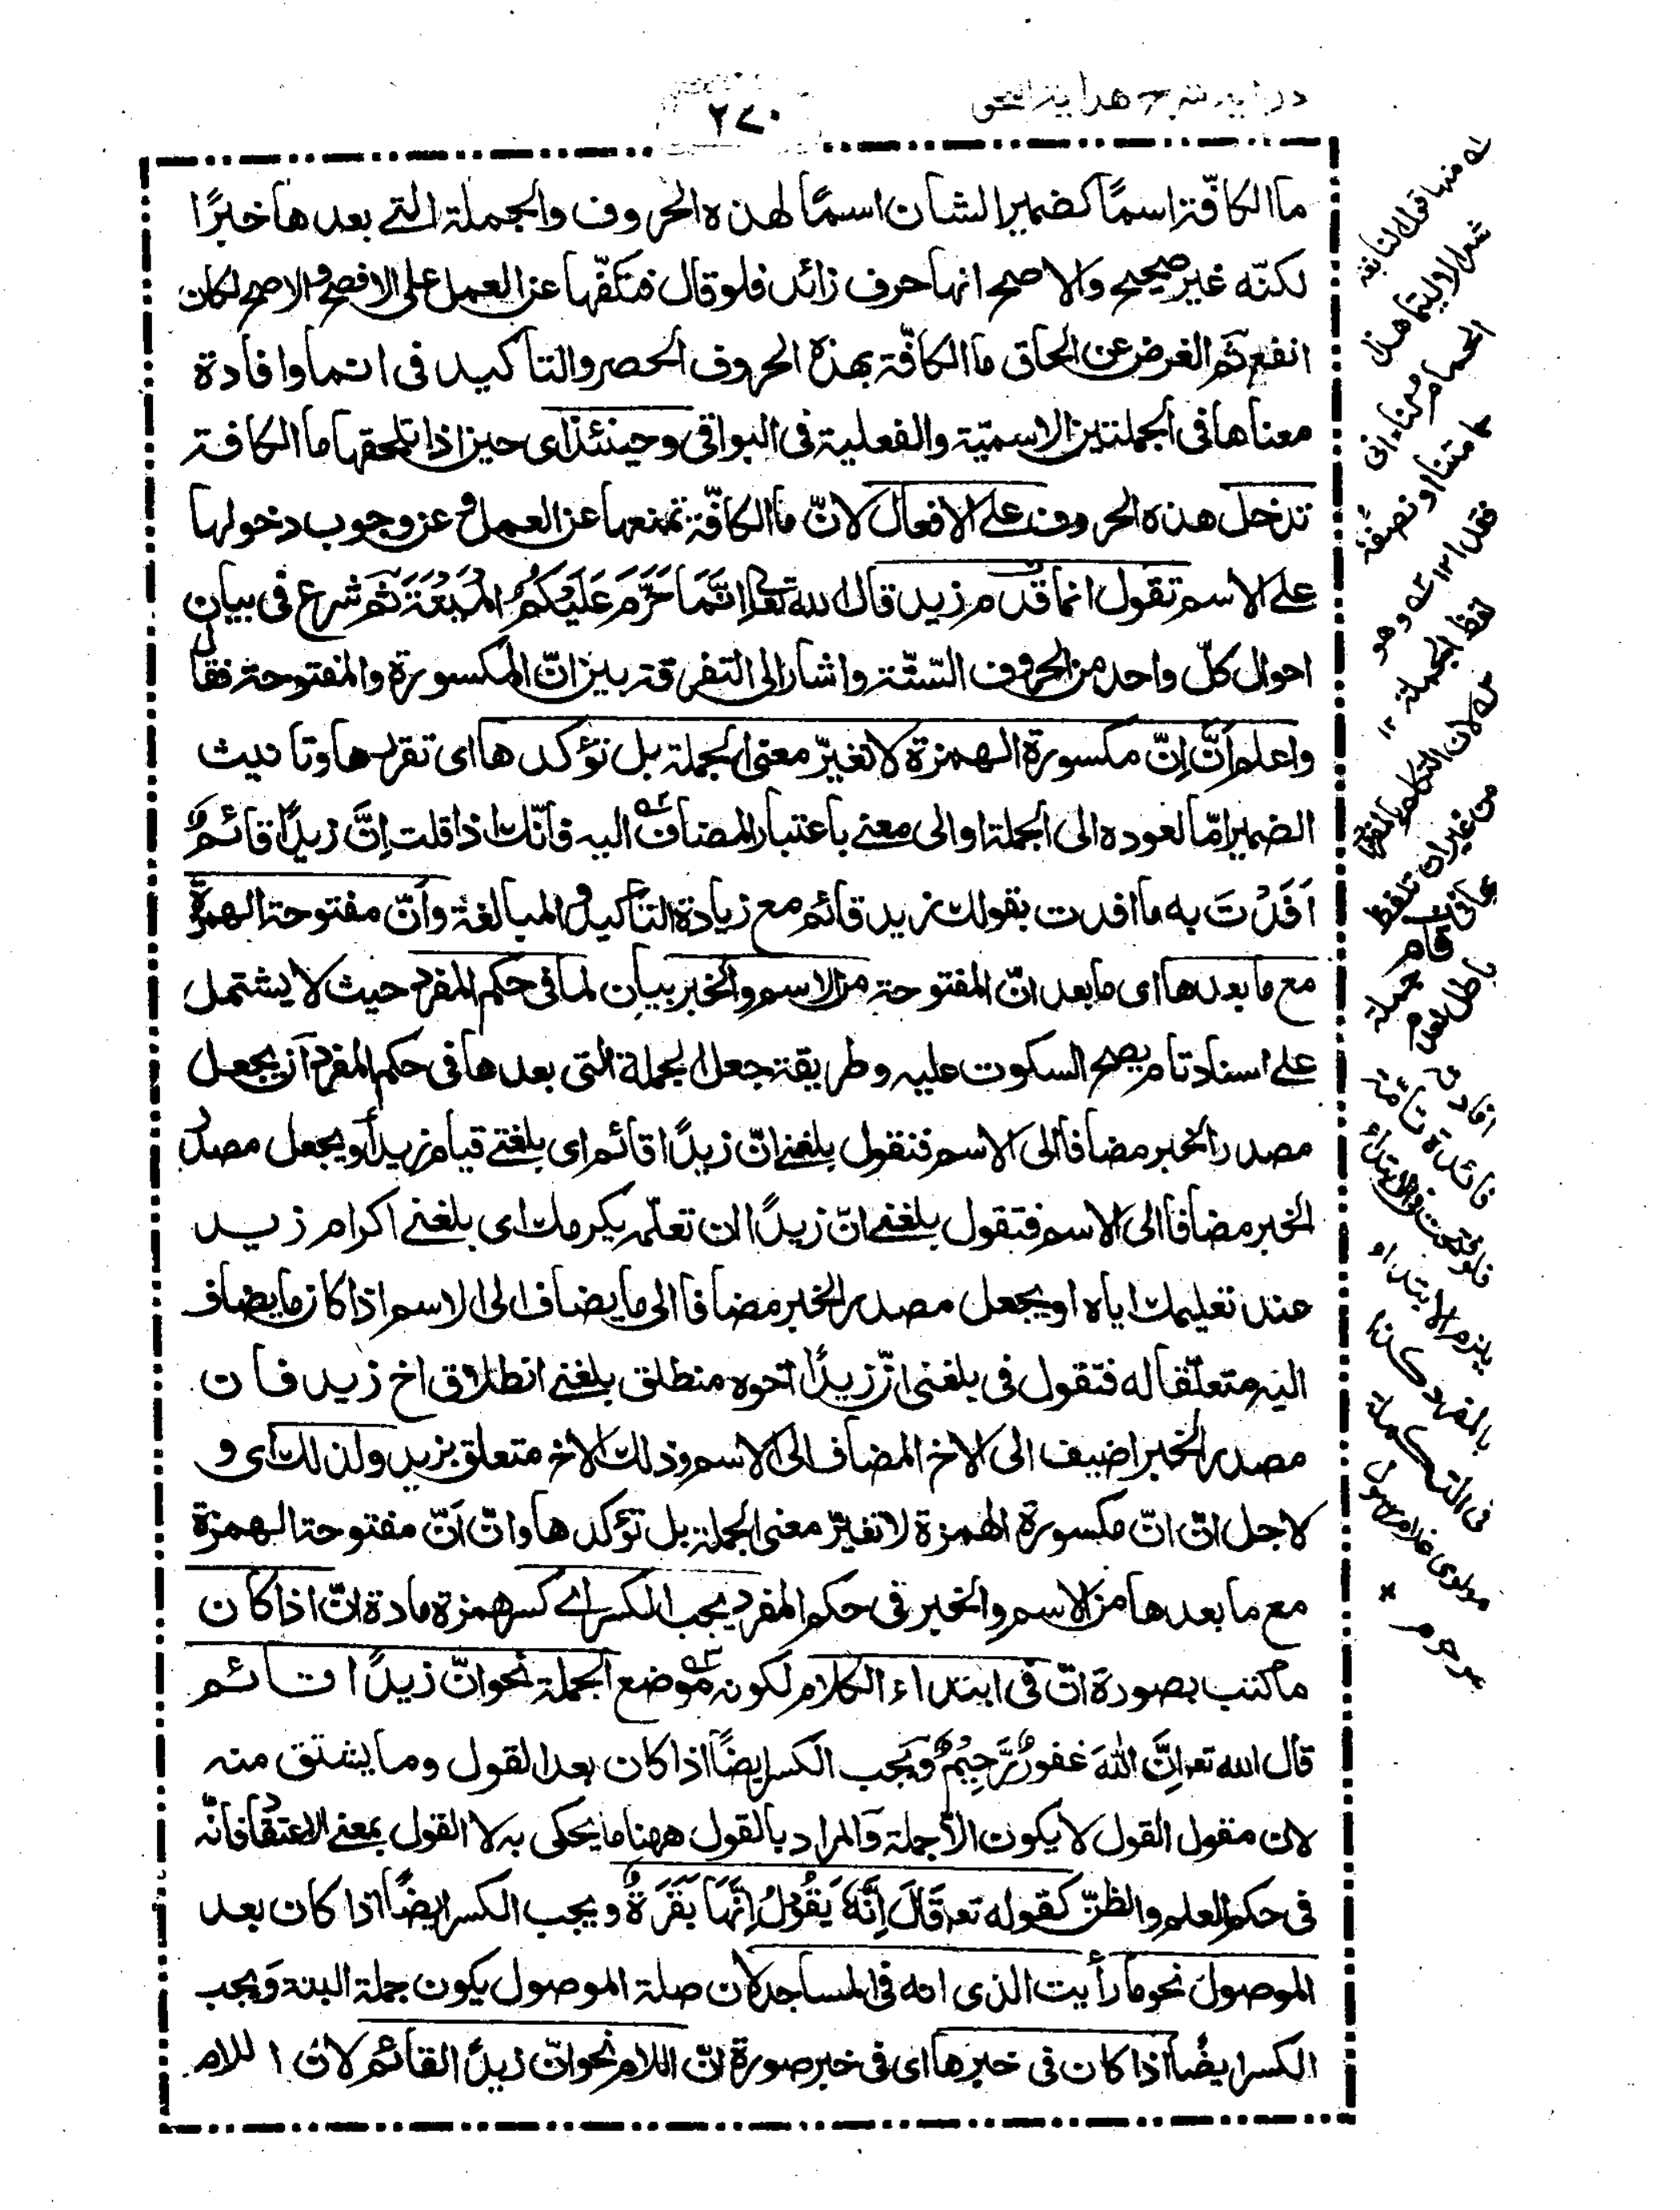 دراية شرح هداية النحو
٢٧٠
ما الكافّة اسمًا كضمير الشان اسمًا لهذه الحروف والجملة التي بعدها خبرًا
لكنّه غير صحيح والاصح انها حرف زائد فلو قال فتكفّها عن العمل على الافصح والاصح لكان
انفع ثم الغرض عن الحاق ما الكافّة بهذه الحروف الحصر والتاكيد فى انما وافادة
معناها فى الجملتين الاسميّة والفعلية فى البواقى وحينئذ اى حين اذا تلحقها ما الكافة
تدخل هذه الحروف على الافعال لانّ ما الكافّة تمنعها عن العمل و عن وجوب دخولها
على الاسم تقول انما قدم زيد قال الله تعالى إِنَّمَا حَرَّمَ عَلَيْكُمُ الْمَيْتَةَ ثم شرع فى بيان
احوال كلّ واحد من الحروف الستّة واشار الى التفرقة بين انّ المكسورة والمفتوحة فقال
واعلم أنَّ إنّ مكسورة الهمزة لا تغيّر معنى الجملة بل تؤكدها اى تقررها وتانيث
الضمير امّا لعوده الى الجملة او الى معنى باعتبار المضاف اليه فانّك اذا قلت إنَّ زيدًا قائمٌ
اَفَدْتَ به ما افدت بقولك زيد قائم مع زيادة التاكيد و المبالغة وأنّ مفتوحة الهمزة
مع ما بعدها اى ما بعد انّ المفتوحة من الاسم والخبر بيان لما فى حكم المفرد حيث لا يشتمل
على اسناد تام يصح السكوت عليه وطريقة جعل الجملة التى بعدها فى حكم المفرد ان يجعل
مصدر الخبر مضافا الى الاسم فنقول بلغنى انّ زيدًا قائم اى بلغنى قيام زيد أو يجعل مصدر
الخبر مضافا الى الاسم فتقول بلغنى انّ زيدًا ان تعلّمه يكرمك اى بلغنى اكرام زيد
عند تعليمك اياه او يجعل مصدر الخبر مضافا الى ما يضاف الى الاسم اذا كان ما يضاف
اليه متعلّقا له فتقول فى بلغنى انّ زيدًا اخوه منطلق بلغنى انطلاق اخ زيد فان
مصدر الخبر اضيف الى الاخ المضاف الى الاسم وذلك الاخ متعلق بزيد ولذلك اى و
لاجل انّ انّ مكسورة الهمزة لا تغيّر معنى الجملة بل تؤكدها وانّ اَنّ مفتوحة الهمزة
مع ما بعدها من الاسم والخبر فى حكم المفرد يجب الكسر اى كسر همزة مادة انّ اذا كان
ما كتب بصورة انّ فى ابتداء الكلام لكونه موضع الجملة نحو انّ زيدًا قائم
قال الله تعـ اِنَّ اللهَ غفورٌ رَّحِيْمٌ ويجب الكسر ايضًا اذا كان بعد القول وما يشتق منه
لان مقول القول لا يكون الّا جملة والمراد بالقول ههنا ما يحكى به لا القول بمعنى الاعتقاد فانّه
فى حكم العلم والظنّ كقوله تعـ قَالَ اِنَّهٗ يَقُوْلُ اِنَّهَا بَقَرَةٌ ويجب الكسر ايضًا اذا كان بعد
الموصول نحو ما رأيت الذى انه فى المساجد لان صلة الموصول يكون جملة البتة ويجب
الكسر ايضًا اذا كان فى خبرها اى فى خبر صورة انّ اللام نحو انّ زيدًا لقائم لان اللام
له منها قول النابغة
شعر او ليتما هذا
الحمام لنا الى
حمامتنا او نصفه
فقد ١٢ ٢ه وهو
لفظ الجملة ١٢
٣ه لان التكلم بالمفرد
من غير ان تلفظ
باطل لعدم
افادته
فائدة تامة
يلزم الابتداء
بالمفرد كذا
فى التكملة
مولوى غلام رسول
مرحوم